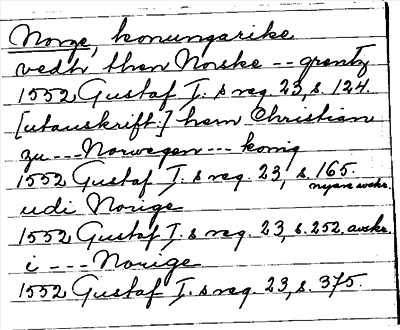 Norge, konungarike
vedh then Norske -- grentz
1552 Gustaf I. s reg. 23, s. 124.
[utanskrift:] hern Christian
zu --- Norwegen --- konig
1552 Gustaf I. s reg. 23, s. 165.
nyare avskr.
udi Norige
1552 Gustaf I. s reg. 23, s. 252. avskr.
i --- Norige
1552 Gustaf I. s reg. 23, s. 375.